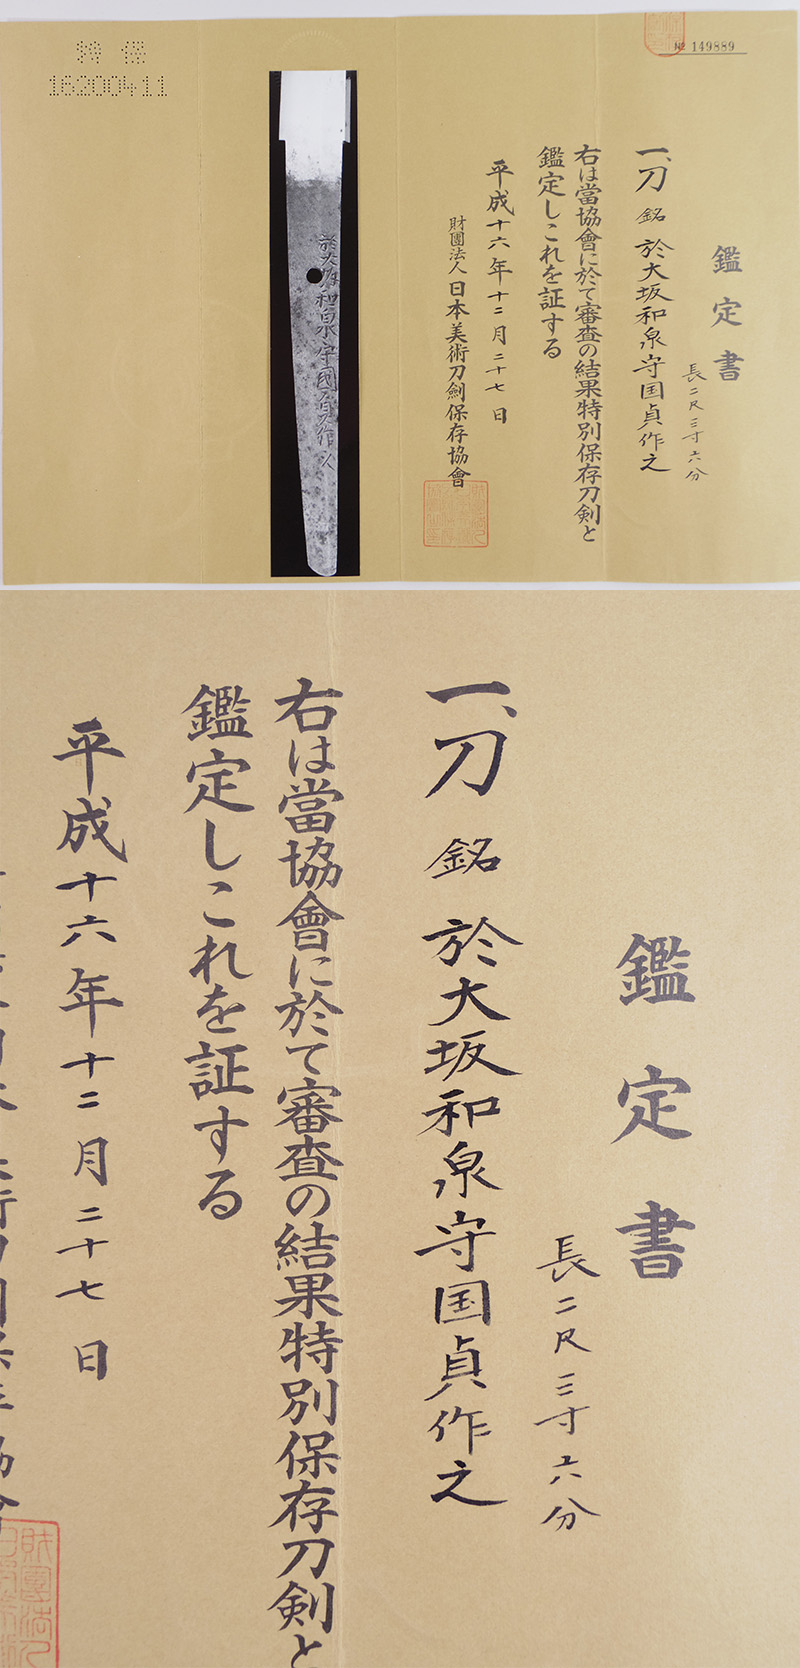 特 保
16200411
№ 149889
鑑定書
長二尺三寸六分
一、刀 銘 於大坂和泉守国貞作之
右は當協會に於て審査の結果特別保存刀剣と
鑑定しこれを証する
平成十六年十二月二十七日
財團法人日本美術刀劍保存協會
於大坂和泉守國貞作之
鑑定書
長二尺三寸六分
一、刀 銘 於大坂和泉守国貞作之
右は當協會に於て審査の結果特別保存刀剣と
鑑定しこれを証する
平成十六年十二月二十七日